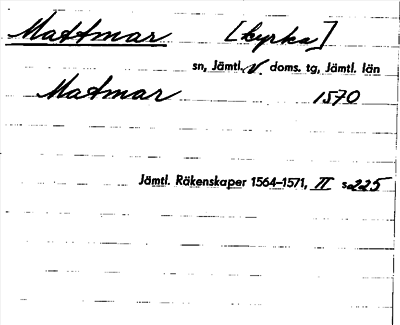 Mattmar [kyrka]
sn, Jämtl. V. doms. tg, Jämtl. län
Matmar 1570
Jämtl. Räkenskaper 1564–1571, II s. 225